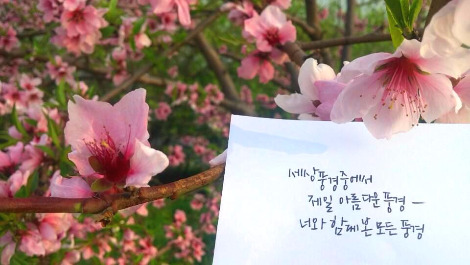 세상풍경중에서
제일 아름다운 풍경 —
너와 함께 본 모든 풍경